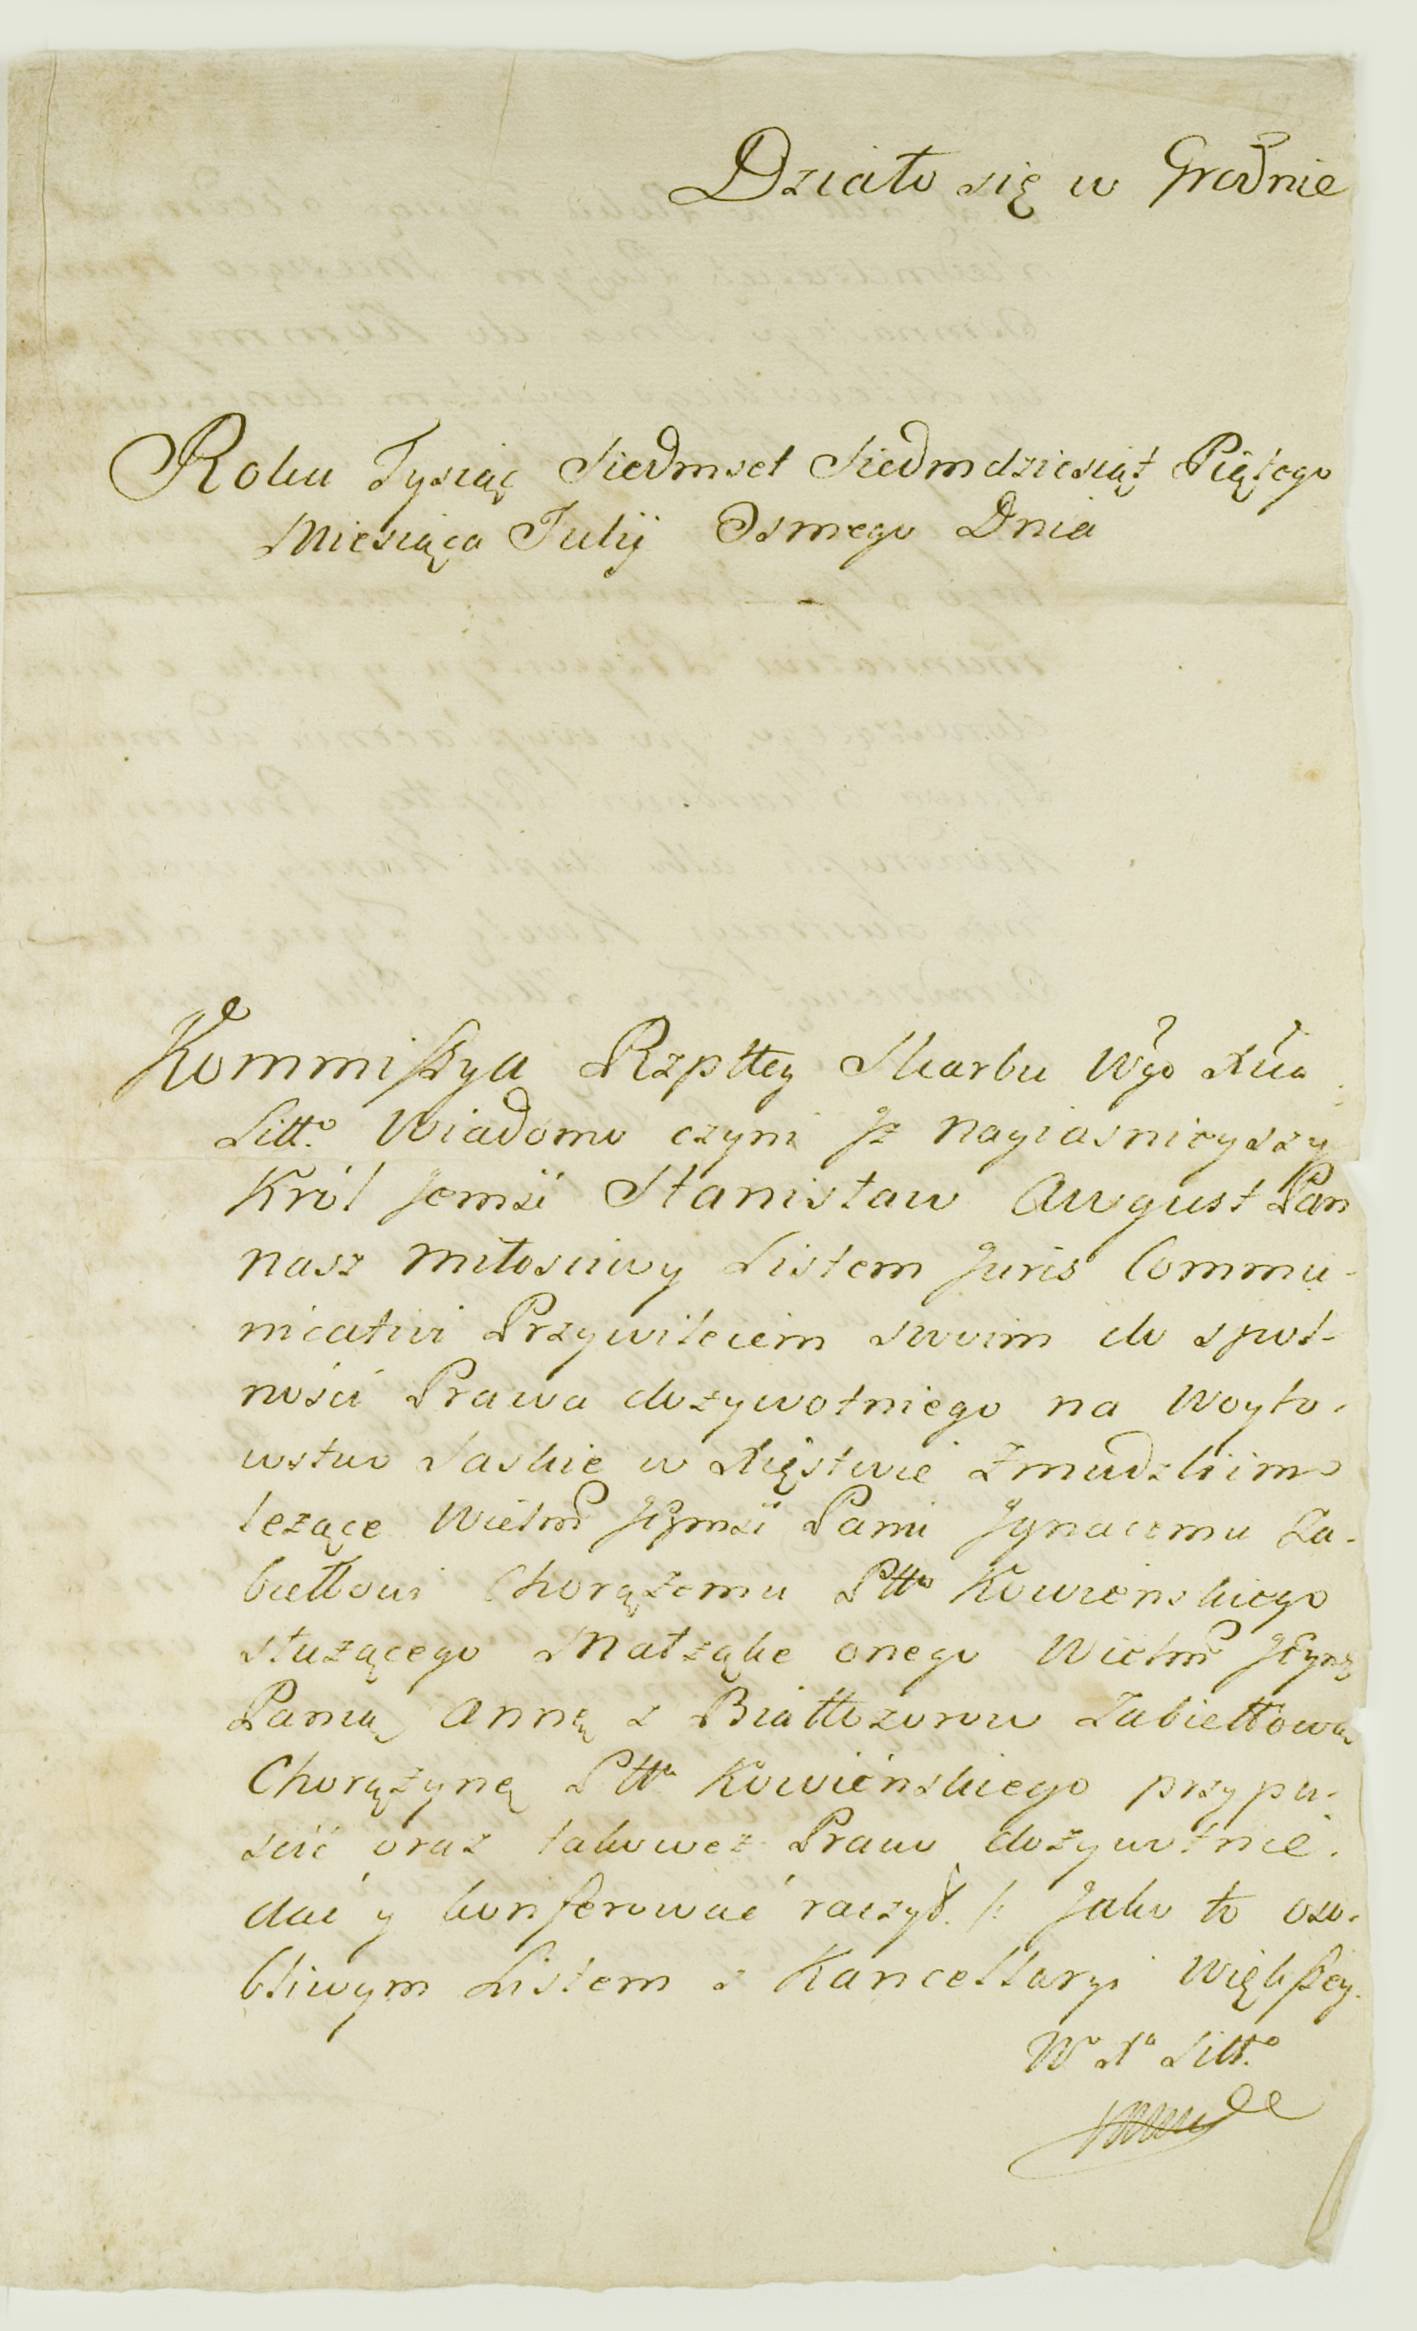 Działo się w Grodnie
Roku Tysiąc Siedmset Siedmdziesiąt Piątego
Miesiąca Julij Osmego Dnia
Kommißya Rzpltey Skarbu Wgo Xa
Litto Wiadomo czyni Jz Nayiasnieyszy
Król Jemści Stanisław August Pan
nasz Miłosciwy Listem Juris Commu-
nicativi Przywileiem swoim do społ-
ności Prawa dożywotniego na Woyto-
wstwo Laskie w Xięstwie Żmudzkim
leżące Wielm Jegomści Panu Jgnacemu Za-
biełłowi Chorążemu Ptto Kowienskiego
służącego Małżąke onego Wielm
Panią Annę z Białłozorow Zabiełłową
Chorążynę Ptta Kowieńskiego przypu-
scić oraz takoweż Prawo dożywotnie
dać y konferować raczył. Jako to oso-
bliwym Listem z Kancellaryi Więkßey
Wo Xa Litto